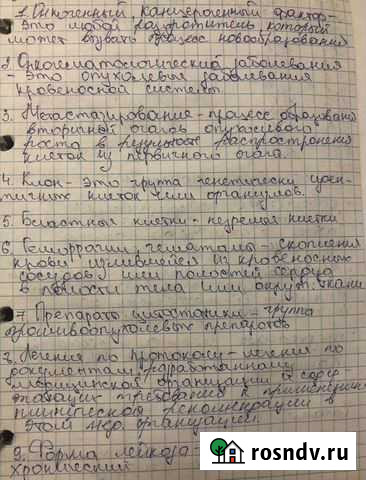 1. Онкогенный канцерогенный фактор-
это любой раздражитель, который
может вызвать процесс новообразования
2. Онкогематологический заболевания
- это опухолевые заболевания
кровеносной системы.
3. Метастазирование - процесс образования
вторичных очагов опухолевого
роста в результате распространения
клеток из первичного очага.
4. Клон - это группа генетически иден-
тичных клеток или организмов.
5. Бластные клетки - незрелые клетки
6. Геморрагии, гематомы - скопления
крови излившейся из кровеносных
сосудов или полостей сердца
в полости тела или окруж. ткани
7. Препараты цитостатики - группа
противоопухолевых препаратов
8. Лечения по протоколу - лечения по
документам разработанному
медицинской организации и содер
жащих требования к применению
клинической рекомендации в
этой мед. организации.
9. Форма лейкоза
хронический
rosndv.ru